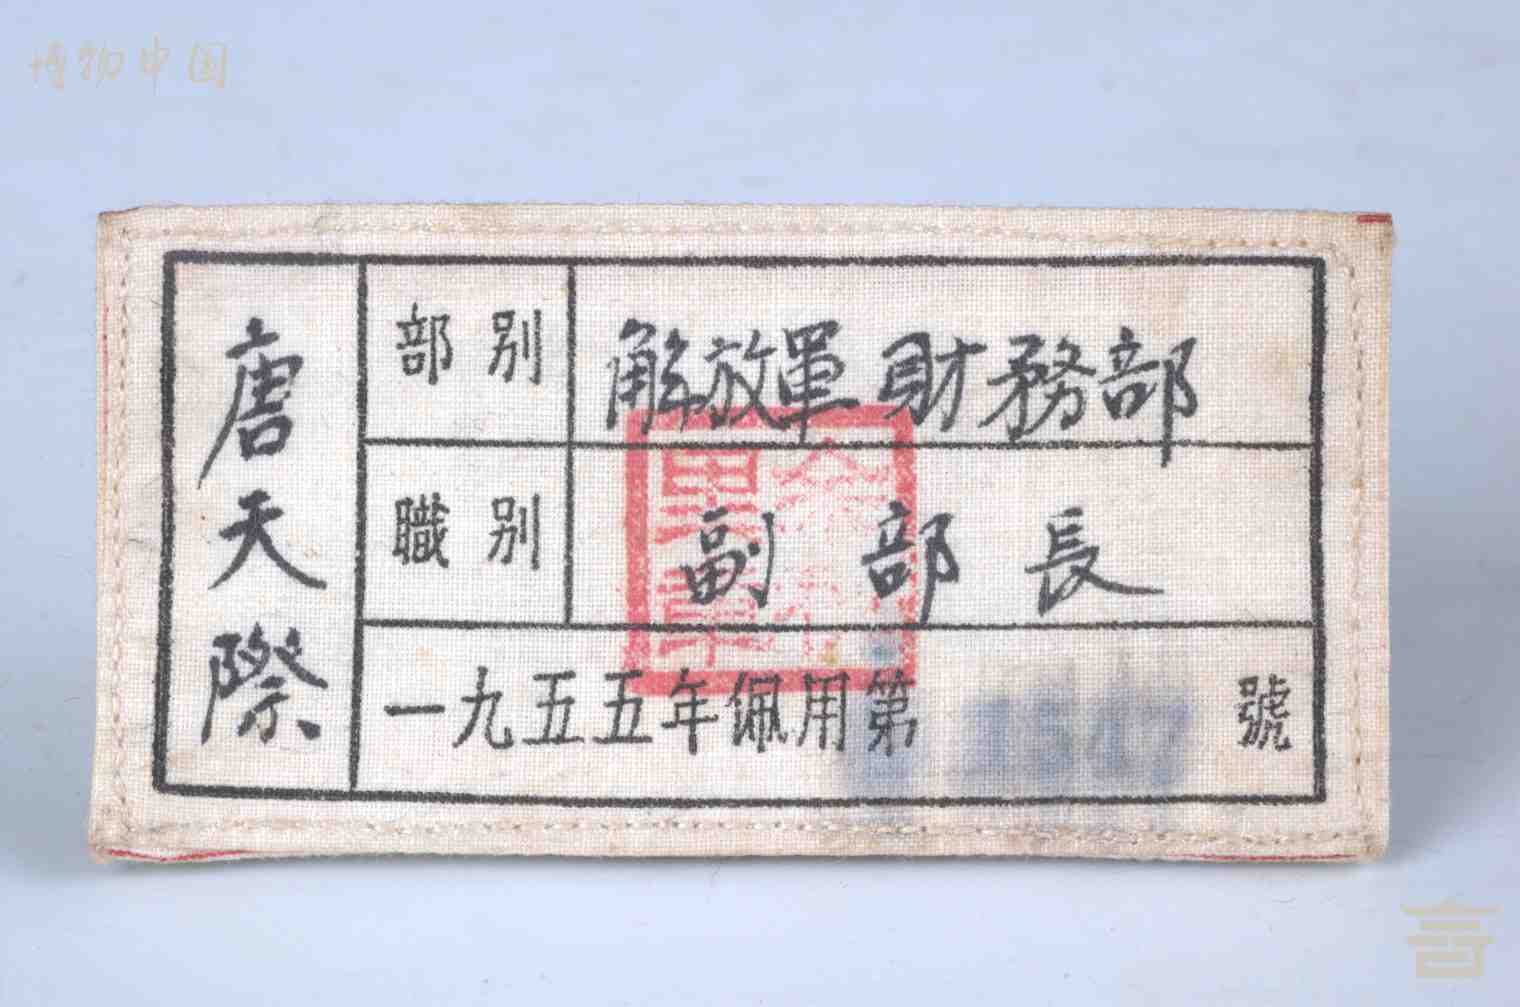 博物中国
唐天際
部别
解放軍財務部
職别
副部長
一九五五年佩用第 1547 號